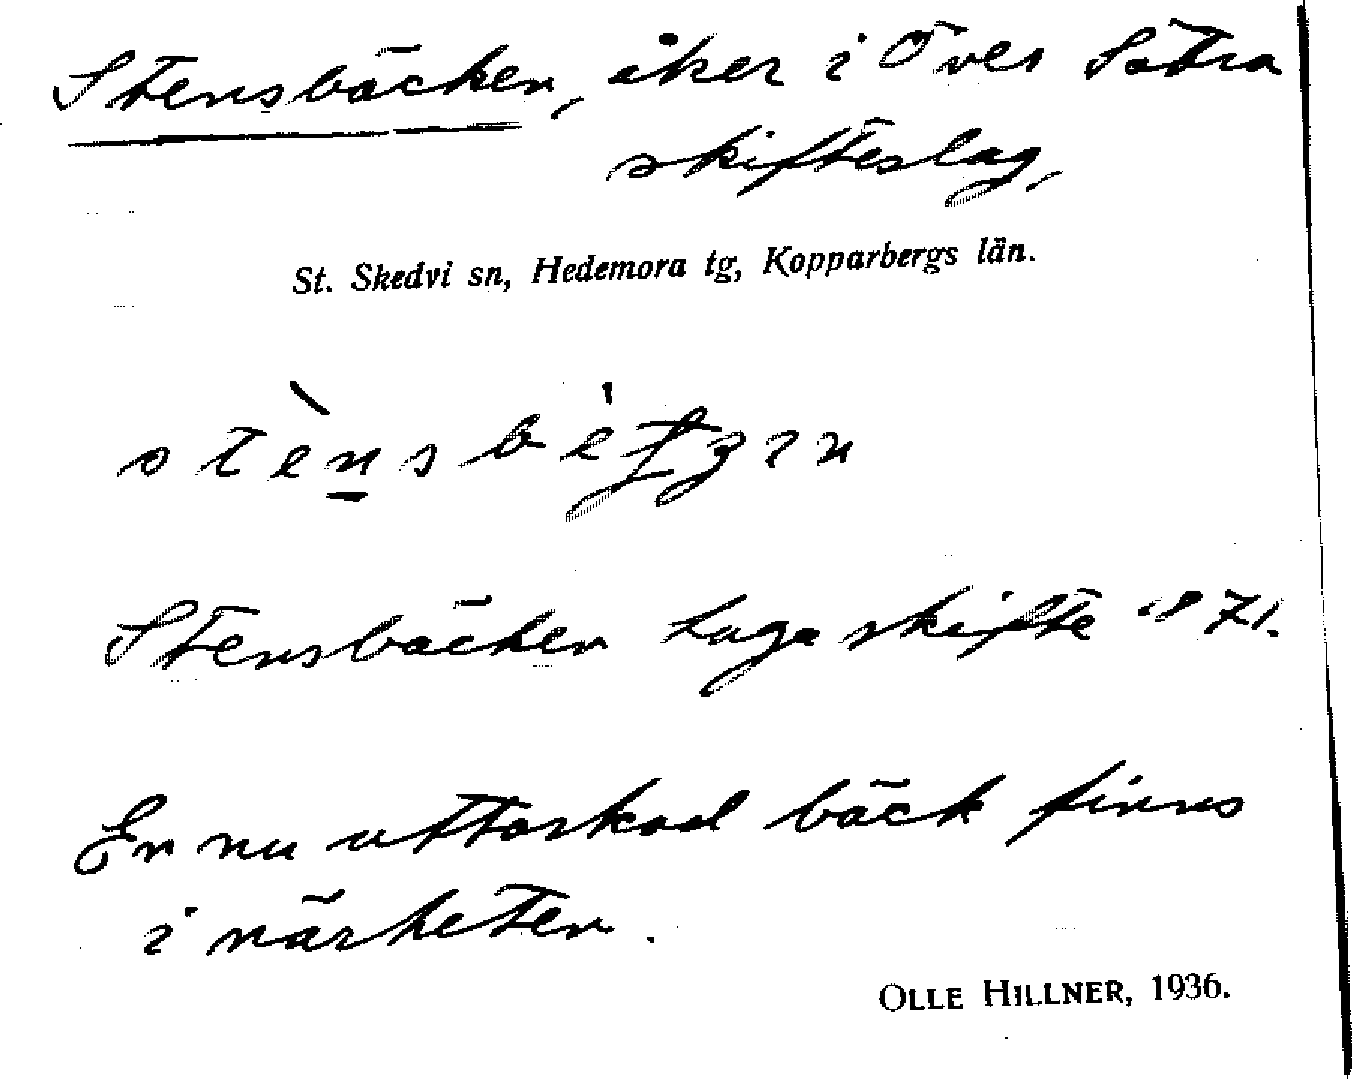 Stensbäcken, åker i Över Sätra
skifteslag,
St. Skedvi sn, Hedemora tg, Kopparbergs län.
Stensbäcken Laga skifte 1871.
En nu uttorkad bäck finns
i närheten.
OLLE HILLNER, 1936.